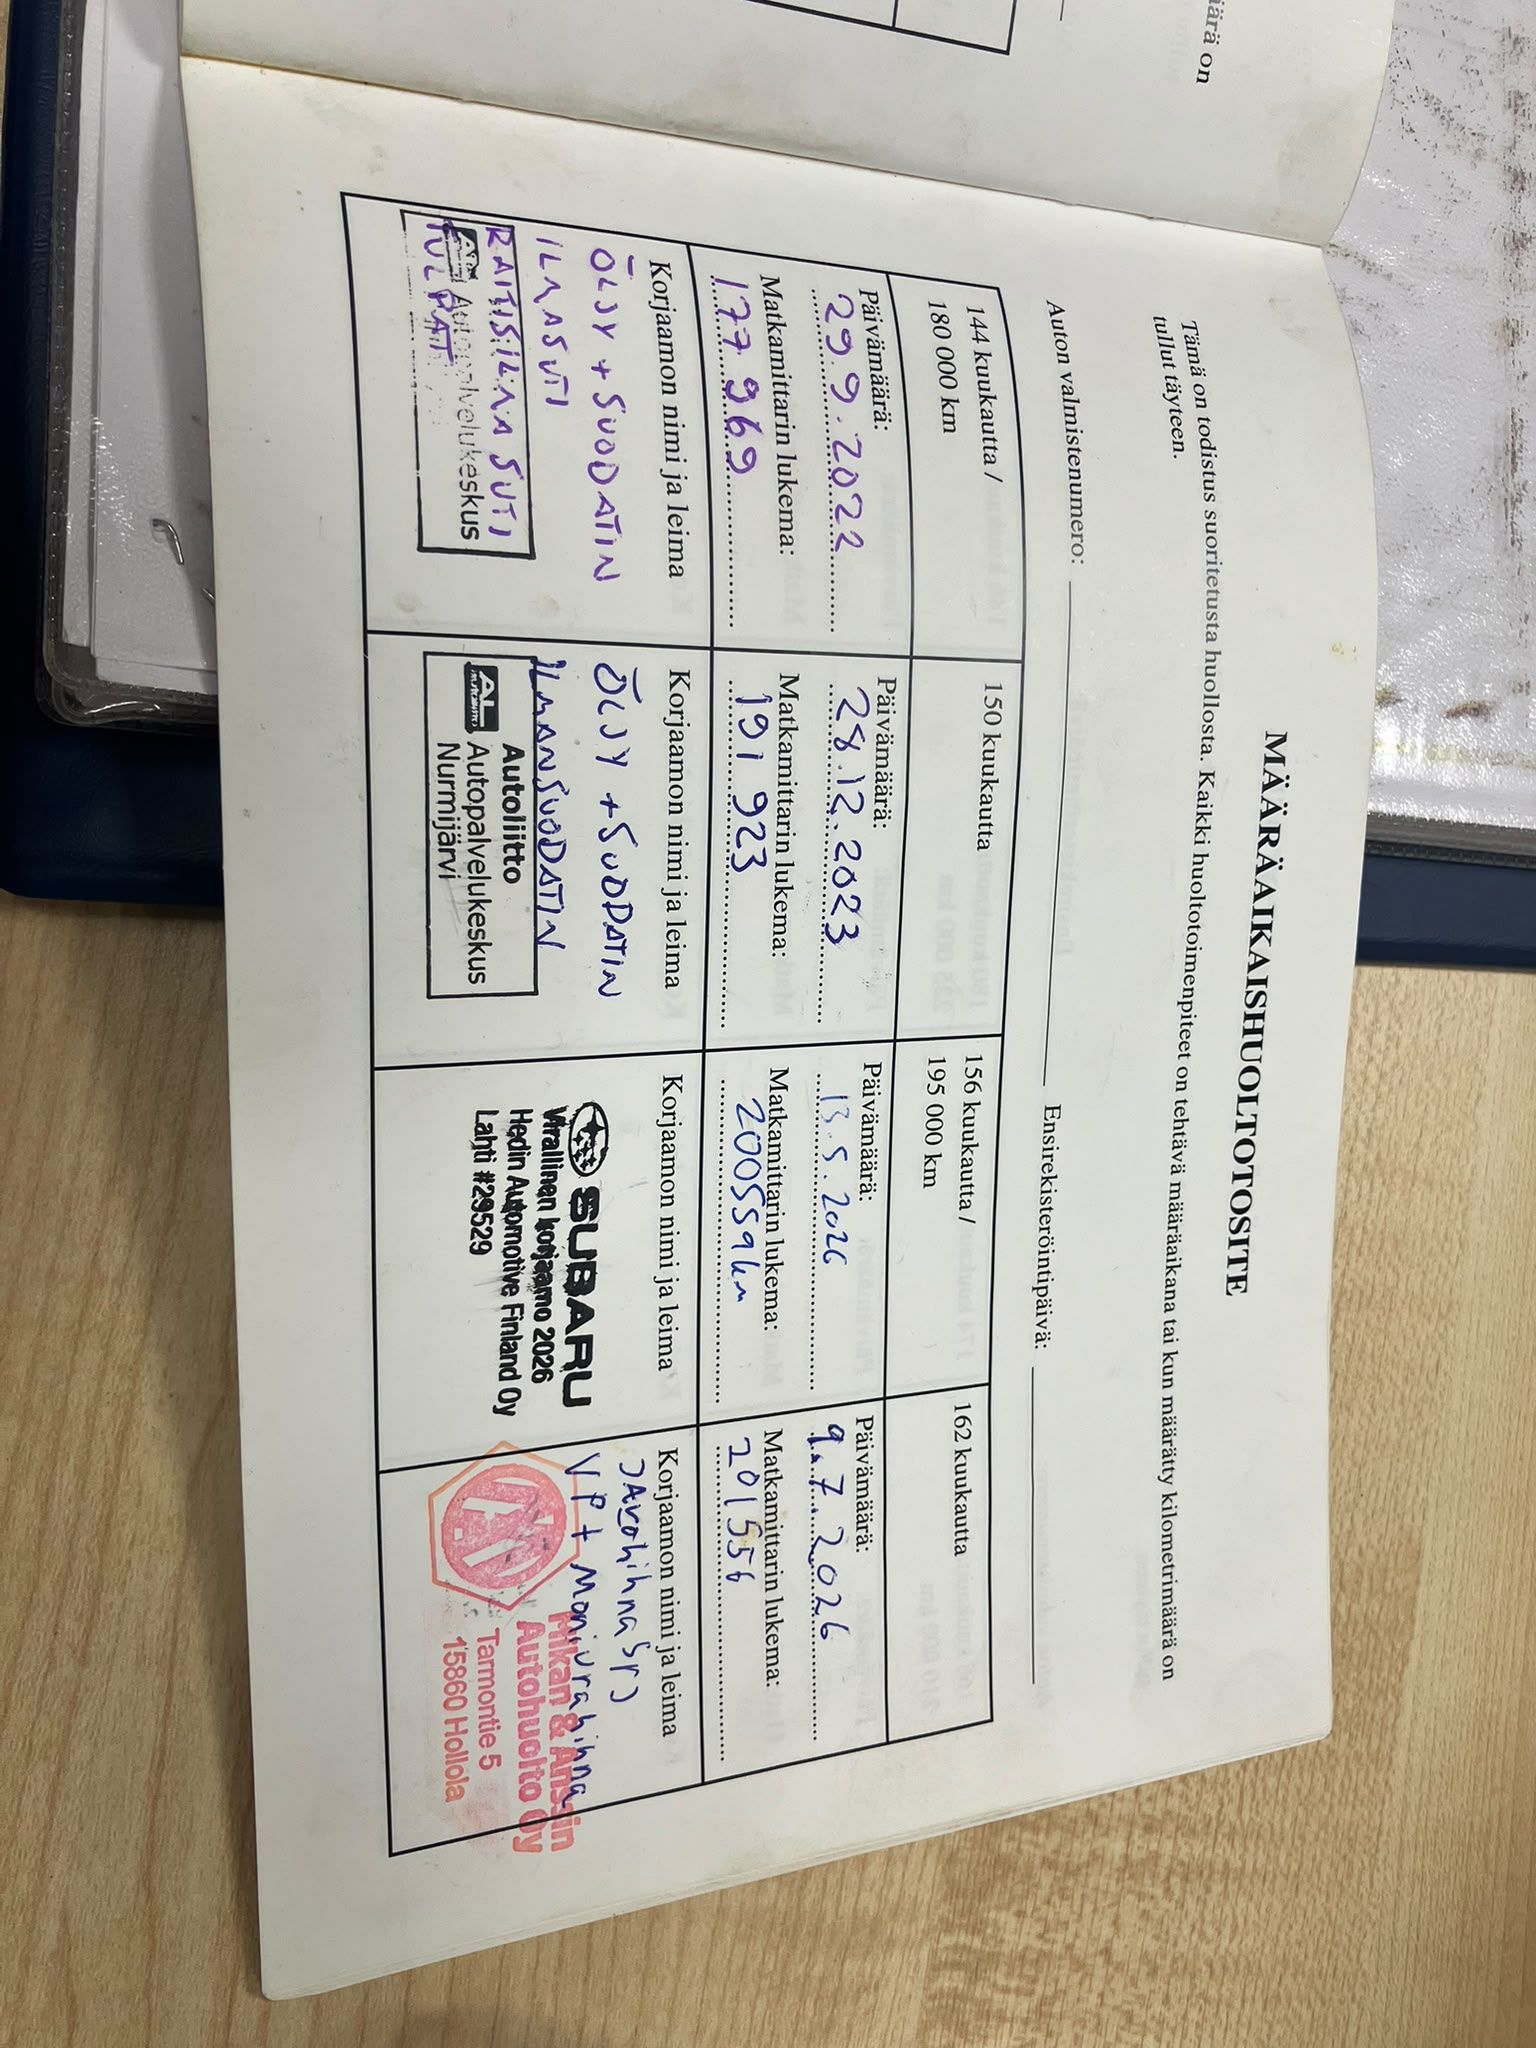 äärä on
MÄÄRÄAIKAISHUOLTOTOSITE
Tämä on todistus suoritetusta huollosta. Kaikki huoltotoimenpiteet on tehtävä määräaikana tai kun määrätty kilometrimäärä on
tullut täyteen.
Auton valmistenumero: Ensirekisteröintipäivä:
144 kuukautta /
180 000 km
Päivämäärä:
29.9.2022
Matkamittarin lukema:
177 969
Korjaamon nimi ja leima
ÖLJY + SUODATIN
ILMASUTI
RAITISILMA SUTI
TULPAT
Autopalvelukeskus
150 kuukautta
Päivämäärä:
28.12.2023
Matkamittarin lukema:
191 923
Korjaamon nimi ja leima
ÖLJY + SUODATIN
ILMANSUODATIN
AL
Autoliitto
Autopalvelukeskus
Nurmijärvi
156 kuukautta /
195 000 km
Päivämäärä:
13.5.2026
Matkamittarin lukema:
200559km
Korjaamon nimi ja leima
SUBARU
Virallinen korjaamo 2026
Hedin Automotive Finland Oy
Lahti #29529
162 kuukautta
Päivämäärä:
9.7.2026
Matkamittarin lukema:
201556
Korjaamon nimi ja leima
JAkohihnaSrJ
VP + Moniurahihna
Mikan & Anssin
Autohuolto Oy
Tarmontie 5
15860 Hollola